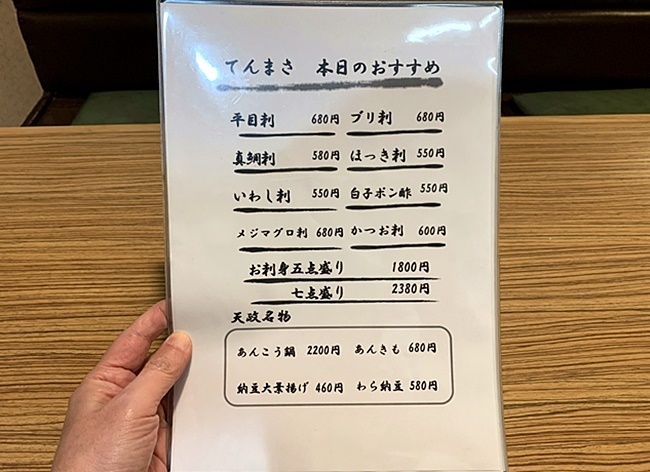 てんまさ 本日のおすすめ
平目刺 680円 ブリ刺 680円
真鯛刺 580円 ほっき刺 550円
いわし刺 550円 白子ポン酢 550円
メジマグロ刺 680円 かつお刺 600円
お刺身五点盛り 1800円
七点盛り 2380円
天政名物
あんこう鍋 2200円 あんきも 680円
納豆大葉揚げ 460円 わら納豆 580円